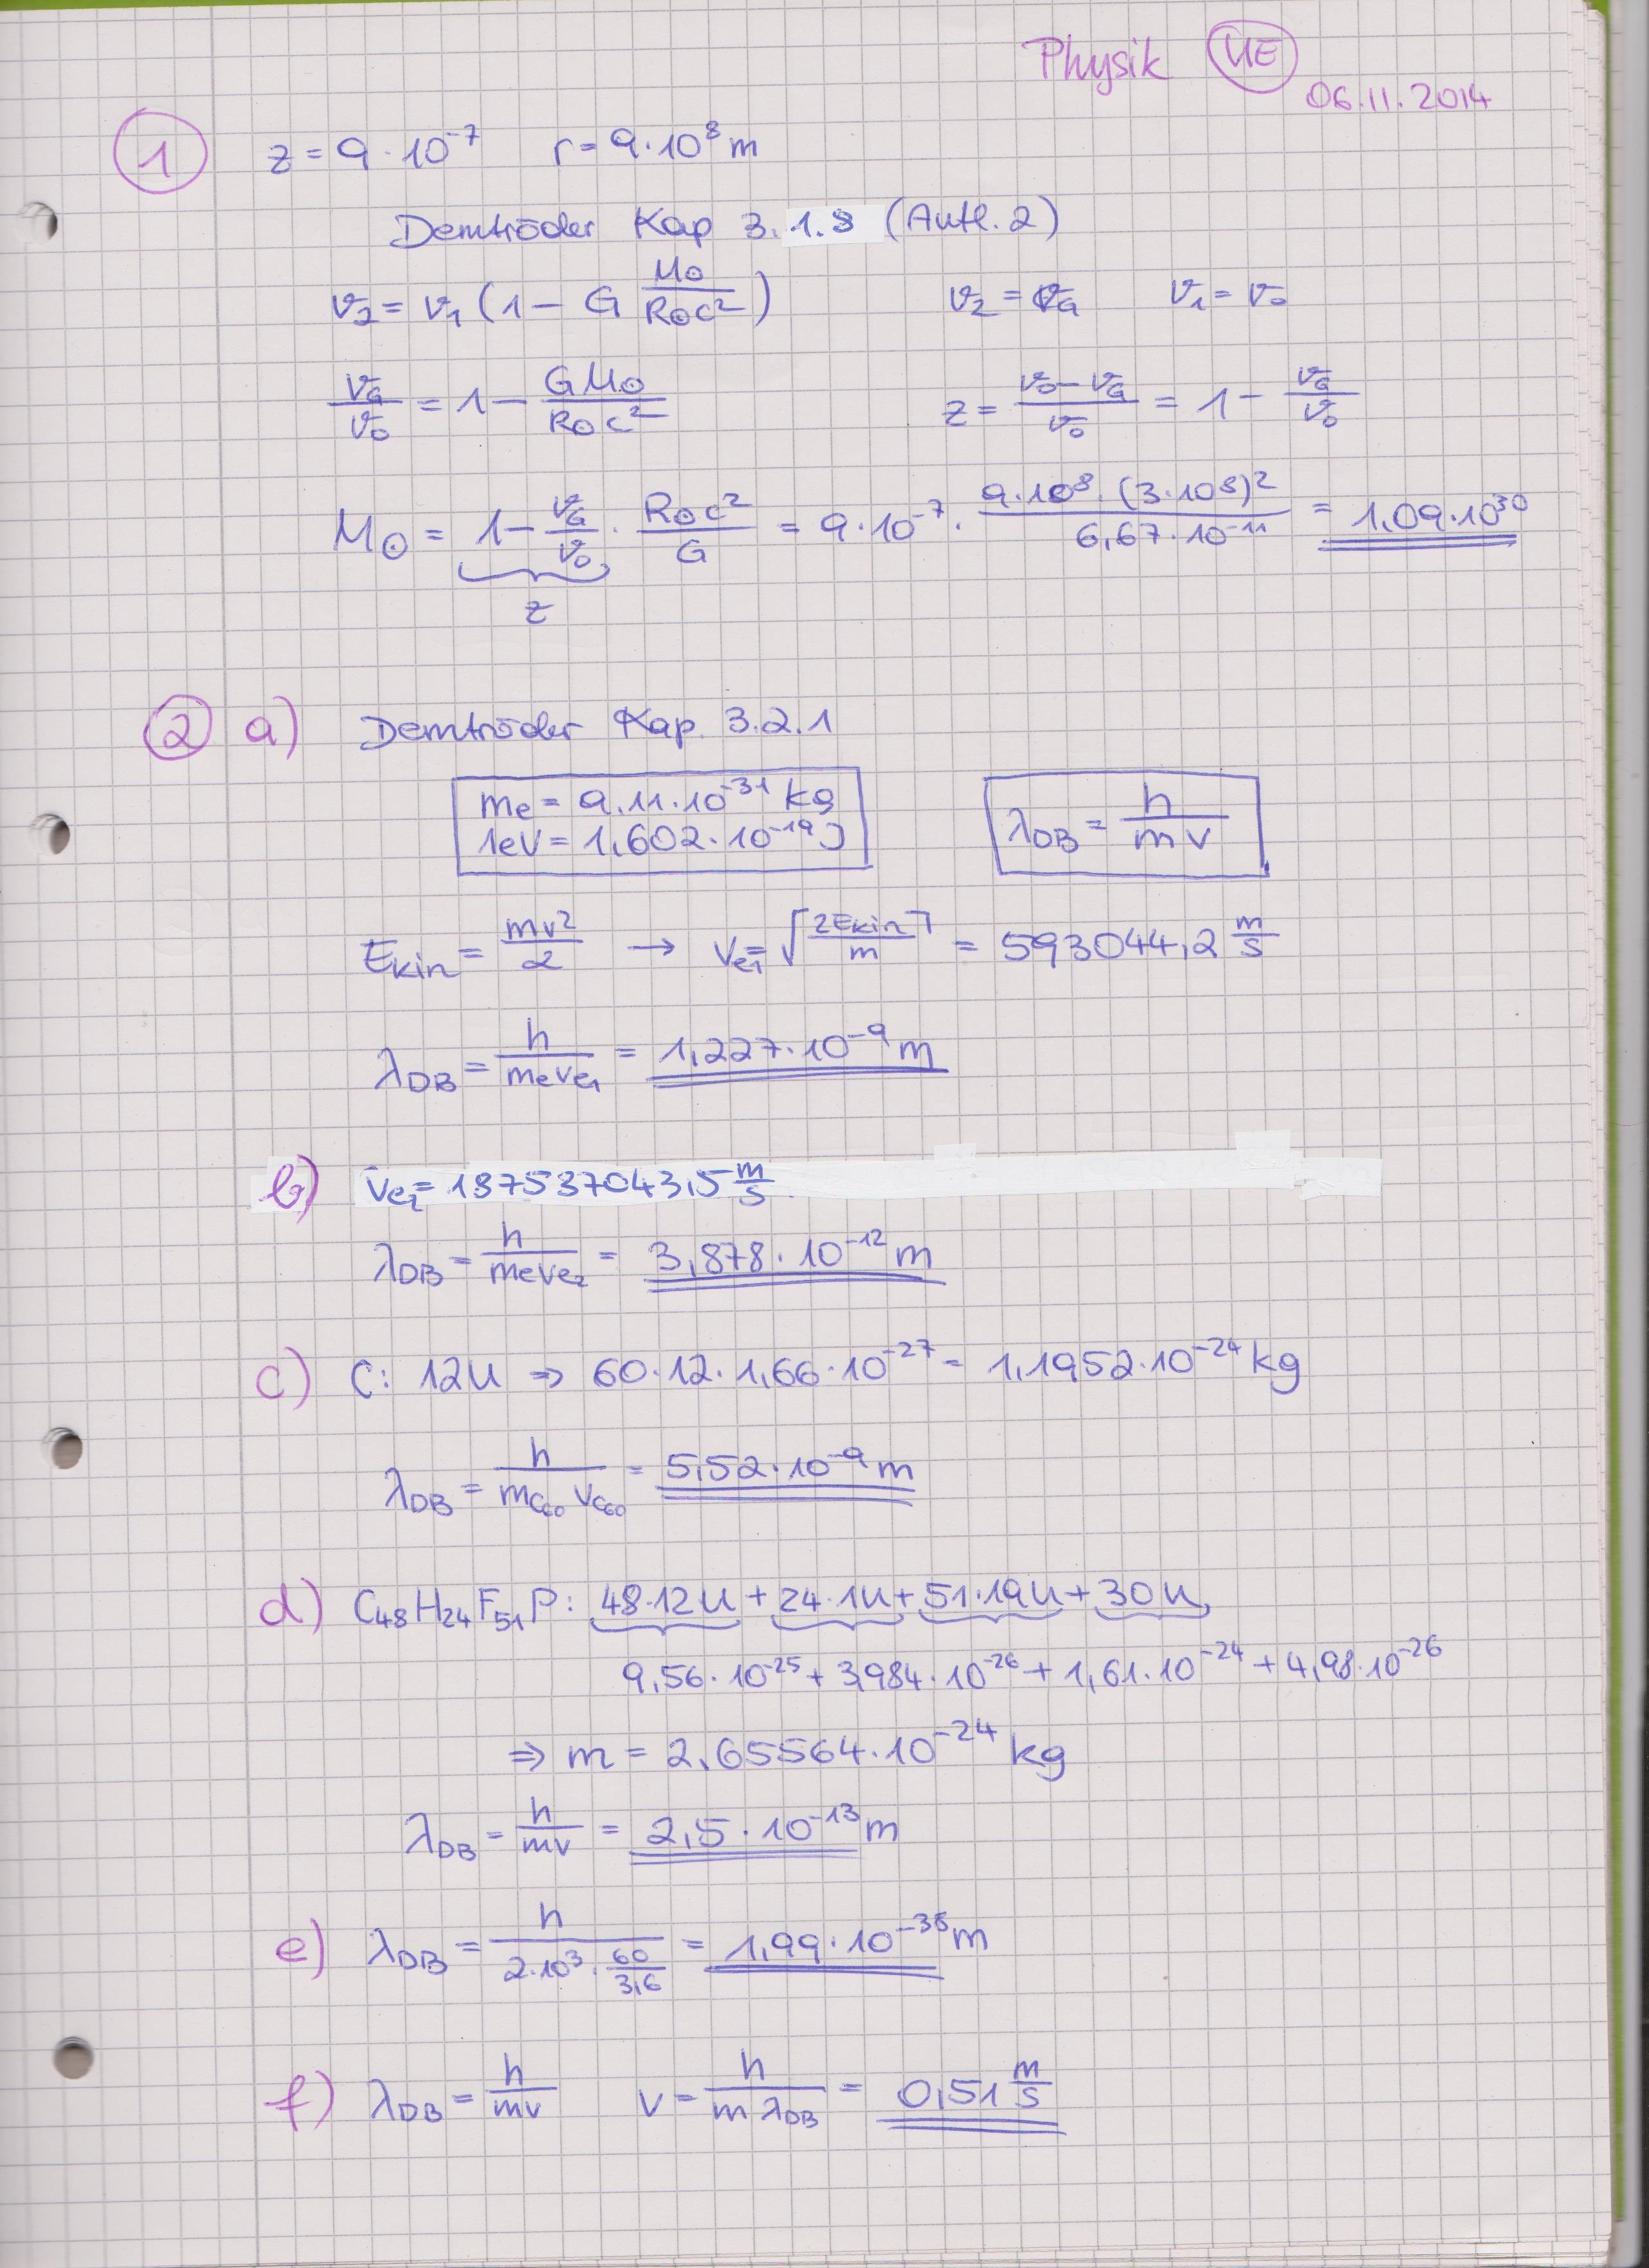 Physik UE
06.11.2014
1 z = 9·10⁻⁷ r = 9·10⁸ m
Demtröder Kap 3.1.8 (Aufl. 2)
ν₂ = ν₁ (1 − G M⊙/(R⊙c²)) ν₂ = ν_G ν₁ = ν₀
ν_G/ν₀ = 1 − GM⊙/(R⊙c²) z = (ν₀ − ν_G)/ν₀ = 1 − ν_G/ν₀
M⊙ = 1 − ν_G/ν₀ · R⊙c²/G = 9·10⁻⁷ · 9·10⁸·(3·10⁸)²/(6,67·10⁻¹¹) = 1,09·10³⁰
z
2 a) Demtröder Kap. 3.2.1
mₑ = 9,11·10⁻³¹ kg
1eV = 1,602·10⁻¹⁹ J
λ_DB = h/(m v)
E_kin = mv²/2 → v_e₁ = √(2E_kin/m) = 593044,2 m/s
λ_DB = h/(mₑv_e₁) = 1,227·10⁻⁹ m
b) v_e₂ = 187537043,5 m/s
λ_DB = h/(mₑv_e₂) = 3,878·10⁻¹² m
c) C: 12u ⇒ 60·12·1,66·10⁻²⁷ = 1,1952·10⁻²⁴ kg
λ_DB = h/(m_C₆₀ v_C₆₀) = 5,52·10⁻⁹ m
d) C₄₈H₂₄F₅₁P: 48·12u + 24·1u + 51·19u + 30u
9,56·10⁻²⁵ + 3,984·10⁻²⁶ + 1,61·10⁻²⁴ + 4,98·10⁻²⁶
⇒ m = 2,65564·10⁻²⁴ kg
λ_DB = h/(mv) = 2,5·10⁻¹³ m
e) λ_DB = h/(2·10³·60/3,6) = 1,99·10⁻³⁸ m
f) λ_DB = h/(mv) v = h/(m λ_DB) = 0,51 m/s